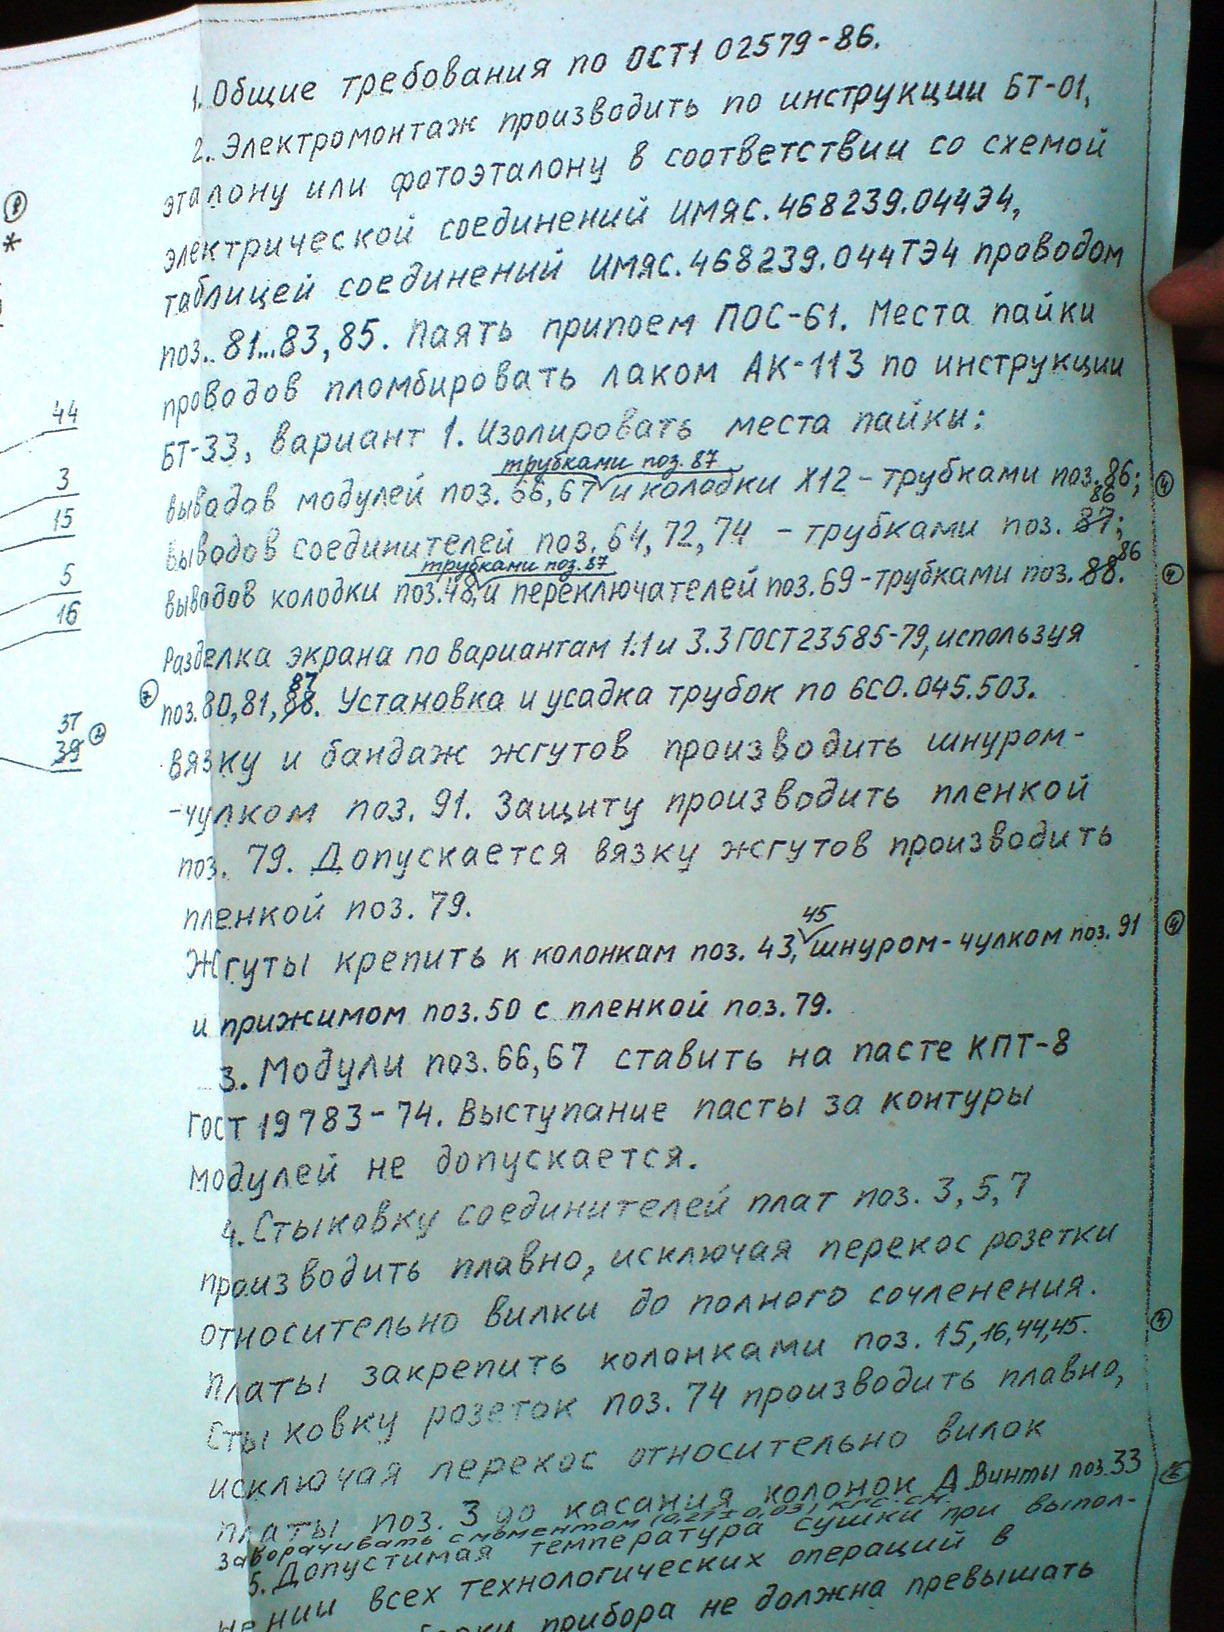 1. Общие требования по ОСТ1 02579-86.
2. Электромонтаж производить по инструкции БТ-01,
эталону или фотоэталону в соответствии со схемой
электрической соединений ИМЯС.468239.044Э4,
таблицей соединений ИМЯС.468239.044ТЭ4 проводом
поз.. 81...83, 85. Паять припоем ПОС-61. Места пайки
проводов пломбировать лаком АК-113 по инструкции
БТ-33, вариант 1. Изолировать места пайки:
трубками поз. 87
выводов модулей поз. 66, 67 и колодки X12 - трубками поз. 86;
86
выводов соединителей поз. 64, 72, 74 - трубками поз. 87;
трубками поз. 87
86
выводов колодки поз. 48, и переключателей поз. 69 - трубками поз. 88.
Разделка экрана по вариантам 1.1 и 3.3 ГОСТ 23585-79, используя
87
поз. 80, 81, 88. Установка и усадка трубок по 6С0.045.503.
Вязку и бандаж жгутов производить шнуром-
-чулком поз. 91. Защиту производить пленкой
поз. 79. Допускается вязку жгутов производить
пленкой поз. 79.
45
Жгуты крепить к колонкам поз. 43, шнуром-чулком поз. 91
и прижимом поз. 50 с пленкой поз. 79.
3. Модули поз. 66, 67 ставить на пасте КПТ-8
ГОСТ 19783-74. Выступание пасты за контуры
модулей не допускается.
4. Стыковку соединителей плат поз. 3, 5, 7
производить плавно, исключая перекос розетки
относительно вилки до полного сочленения.
Платы закрепить колонками поз. 15, 16, 44, 45.
Стыковку розеток поз. 74 производить плавно,
исключая перекос относительно вилок
платы поз. 3 до касания колонок А. Винты поз. 33
заворачивать с моментом (0,21±0,03) кгс·см.
5. Допустимая температура сушки при выпол-
нении всех технологических операций в
прибора не должна превышать
44
3
15
5
16
37
39
8
*
4
4
7
2
4
4